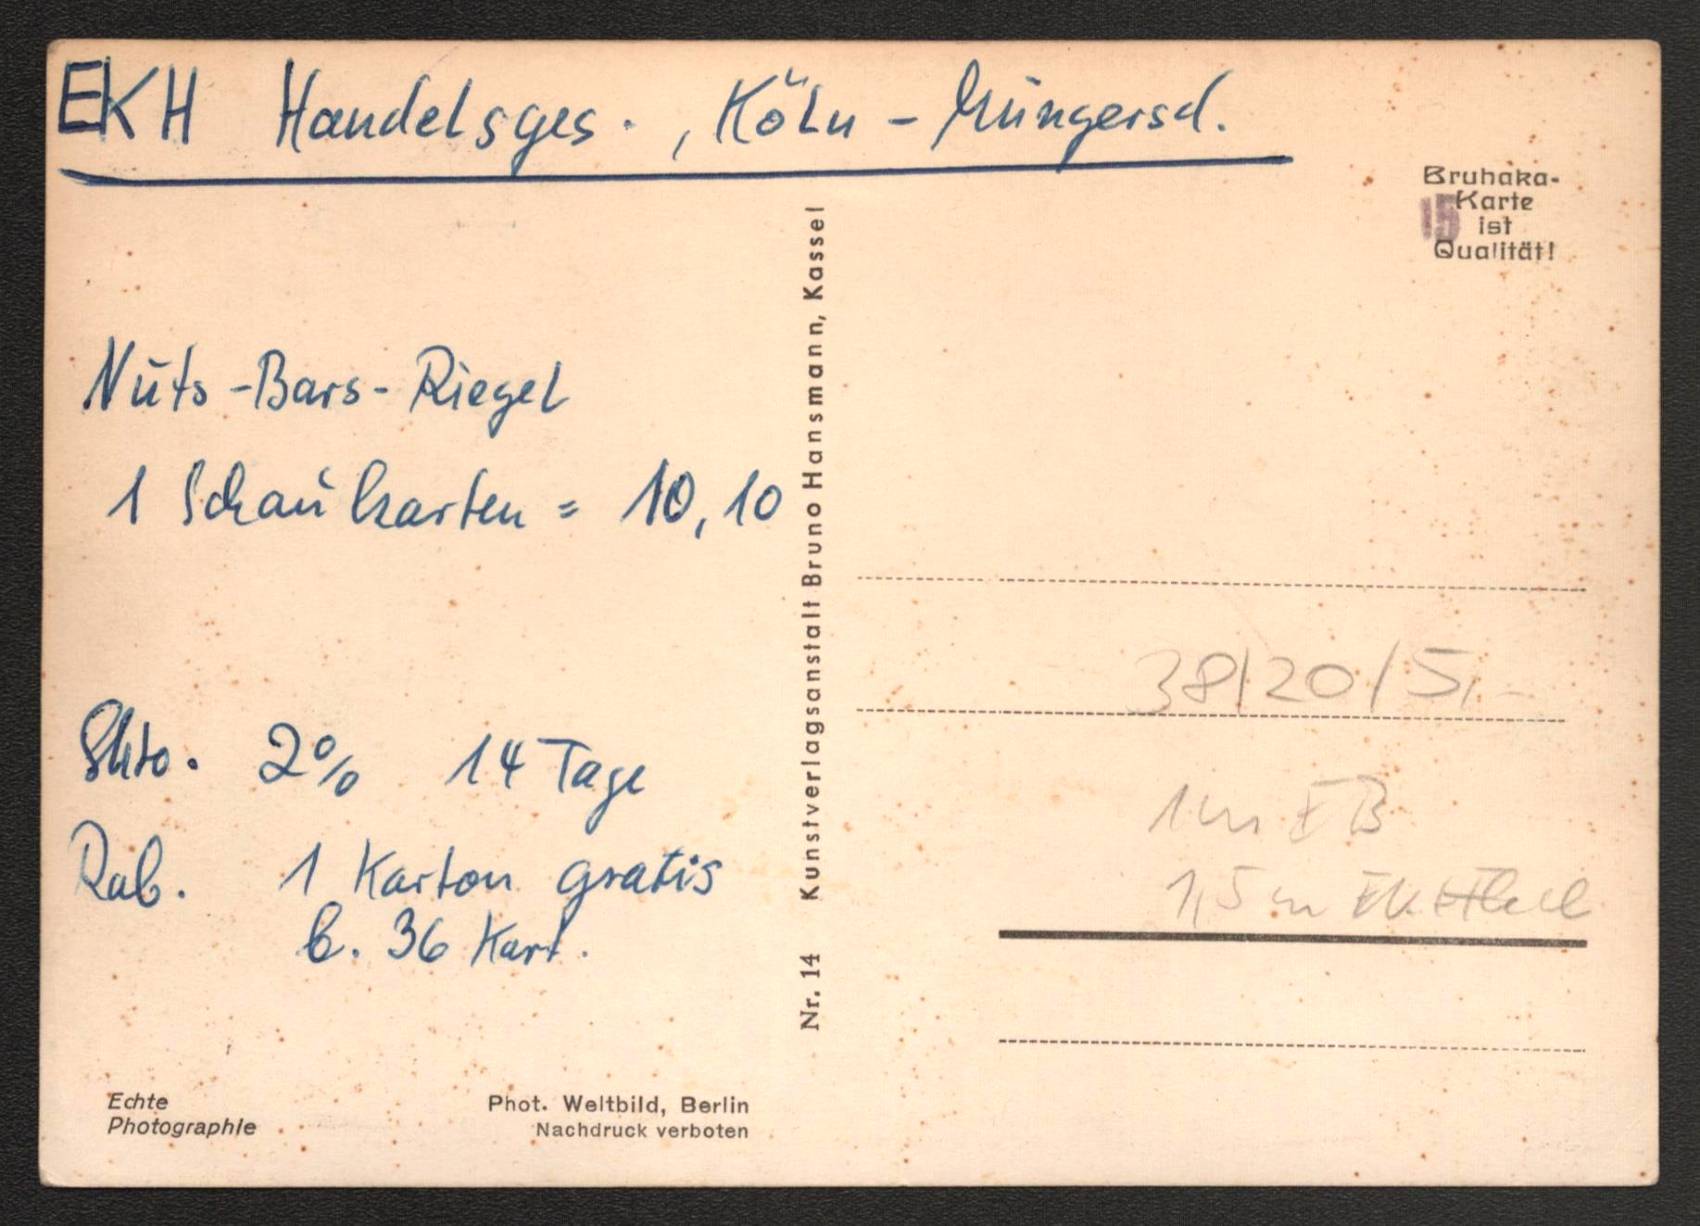 EKH Handelsges., Köln - Müngersd.
Bruhaka-
Karte
15 ist
Qualität!
Nuts-Bars-Riegel
1 Schaukarten = 10,10
Skto. 2% 14 Tage
Rab. 1 Karton gratis
b. 36 Kart.
Nr. 14 Kunstverlagsanstalt Bruno Hansmann, Kassel
38/20/5,-
1 m EB
1,5 m
Echte
Photographie
Phot. Weltbild, Berlin
Nachdruck verboten